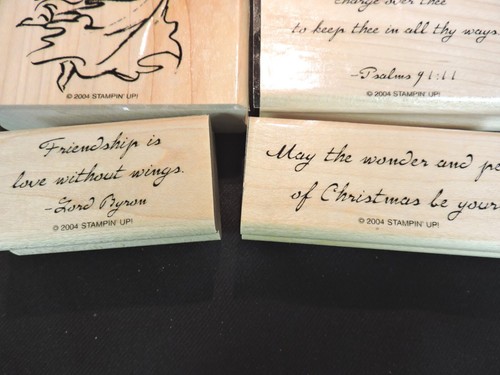 © 2004 STAMPIN' UP!
charge over thee
to keep thee in all thy ways.
-Psalms 91:11
© 2004 STAMPIN' UP!
Friendship is
love without wings.
-Lord Byron
© 2004 STAMPIN' UP!
May the wonder and pe
of Christmas be your
© 2004 STAMPIN' UP!